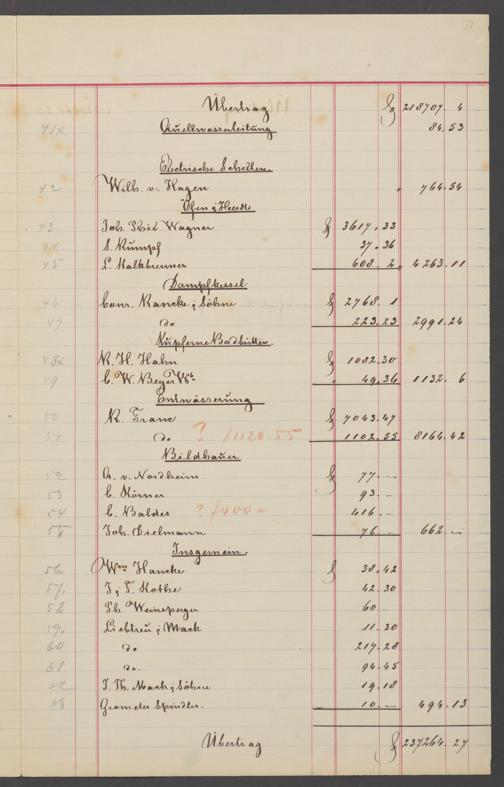 Übertrag fl 218707. 4
41x Quellwasserleitung 84.53
Electrische Schellen.
42 Wilh. v. Hagen 764.54
Öfen & Heerde
43 Joh. Wagner fl 3617.33
44 S. Rumpf 37.36
45 L. Kalkbrenner 608. 2. 4263.11
Dampfkessel
46 Cons. Rancke & Söhne fl 2768. 1
47 do 223.23 2991.24
Kupferne Badbütten
48x R. H. Hahn fl 1082.30
49 C. W. Beyer Wwe 49.36 1132. 6
Entwässerung
50 R. Franc fl 7043.47
51 do ? f1120.55 1102.55 8164.42
Bildhauer
52 A. v. Nordheim fl 77.—
53 C. Körner 93.—
54 C. Baldes ? f400— 416.—
55x Joh. Dielmann 76.— 662.—
Insgemein.
56. Wm Hancke fl 38.42
57. J. & S. Rothe 42.30
58 Ph. Weinsperger 60—
59. Liebtreu & Mack 11.30
60 do 217.28
61 do. 94.45
62 J. Th. Mack & Söhne 19.18
63 Geometer Spindler. 10.— 494.13
Übertrag fl 237264.27